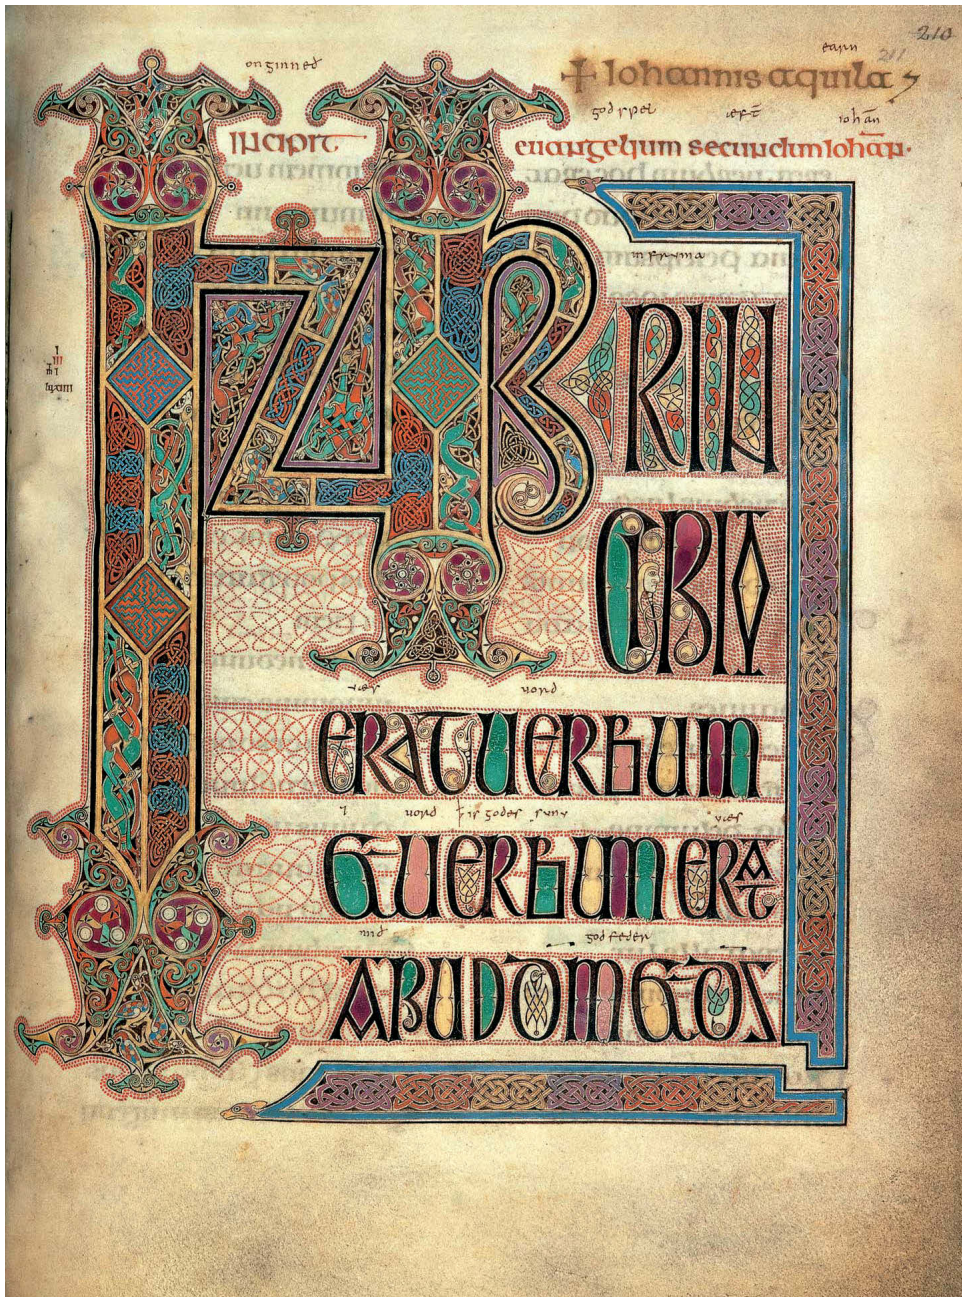 210
earn 211
+ Iohannis aquila
onginneð
godspel æft̄ iohan̄
Incipit euangelium secundum Iohan̄·
in fruma
IN PRIN
CIPIO
uæs uord
ERAT UERBUM
⁊ uord þ is godes sunu uæs
ET UERBUM ERAT
mið god feder
APUD D̄M ET D̄S